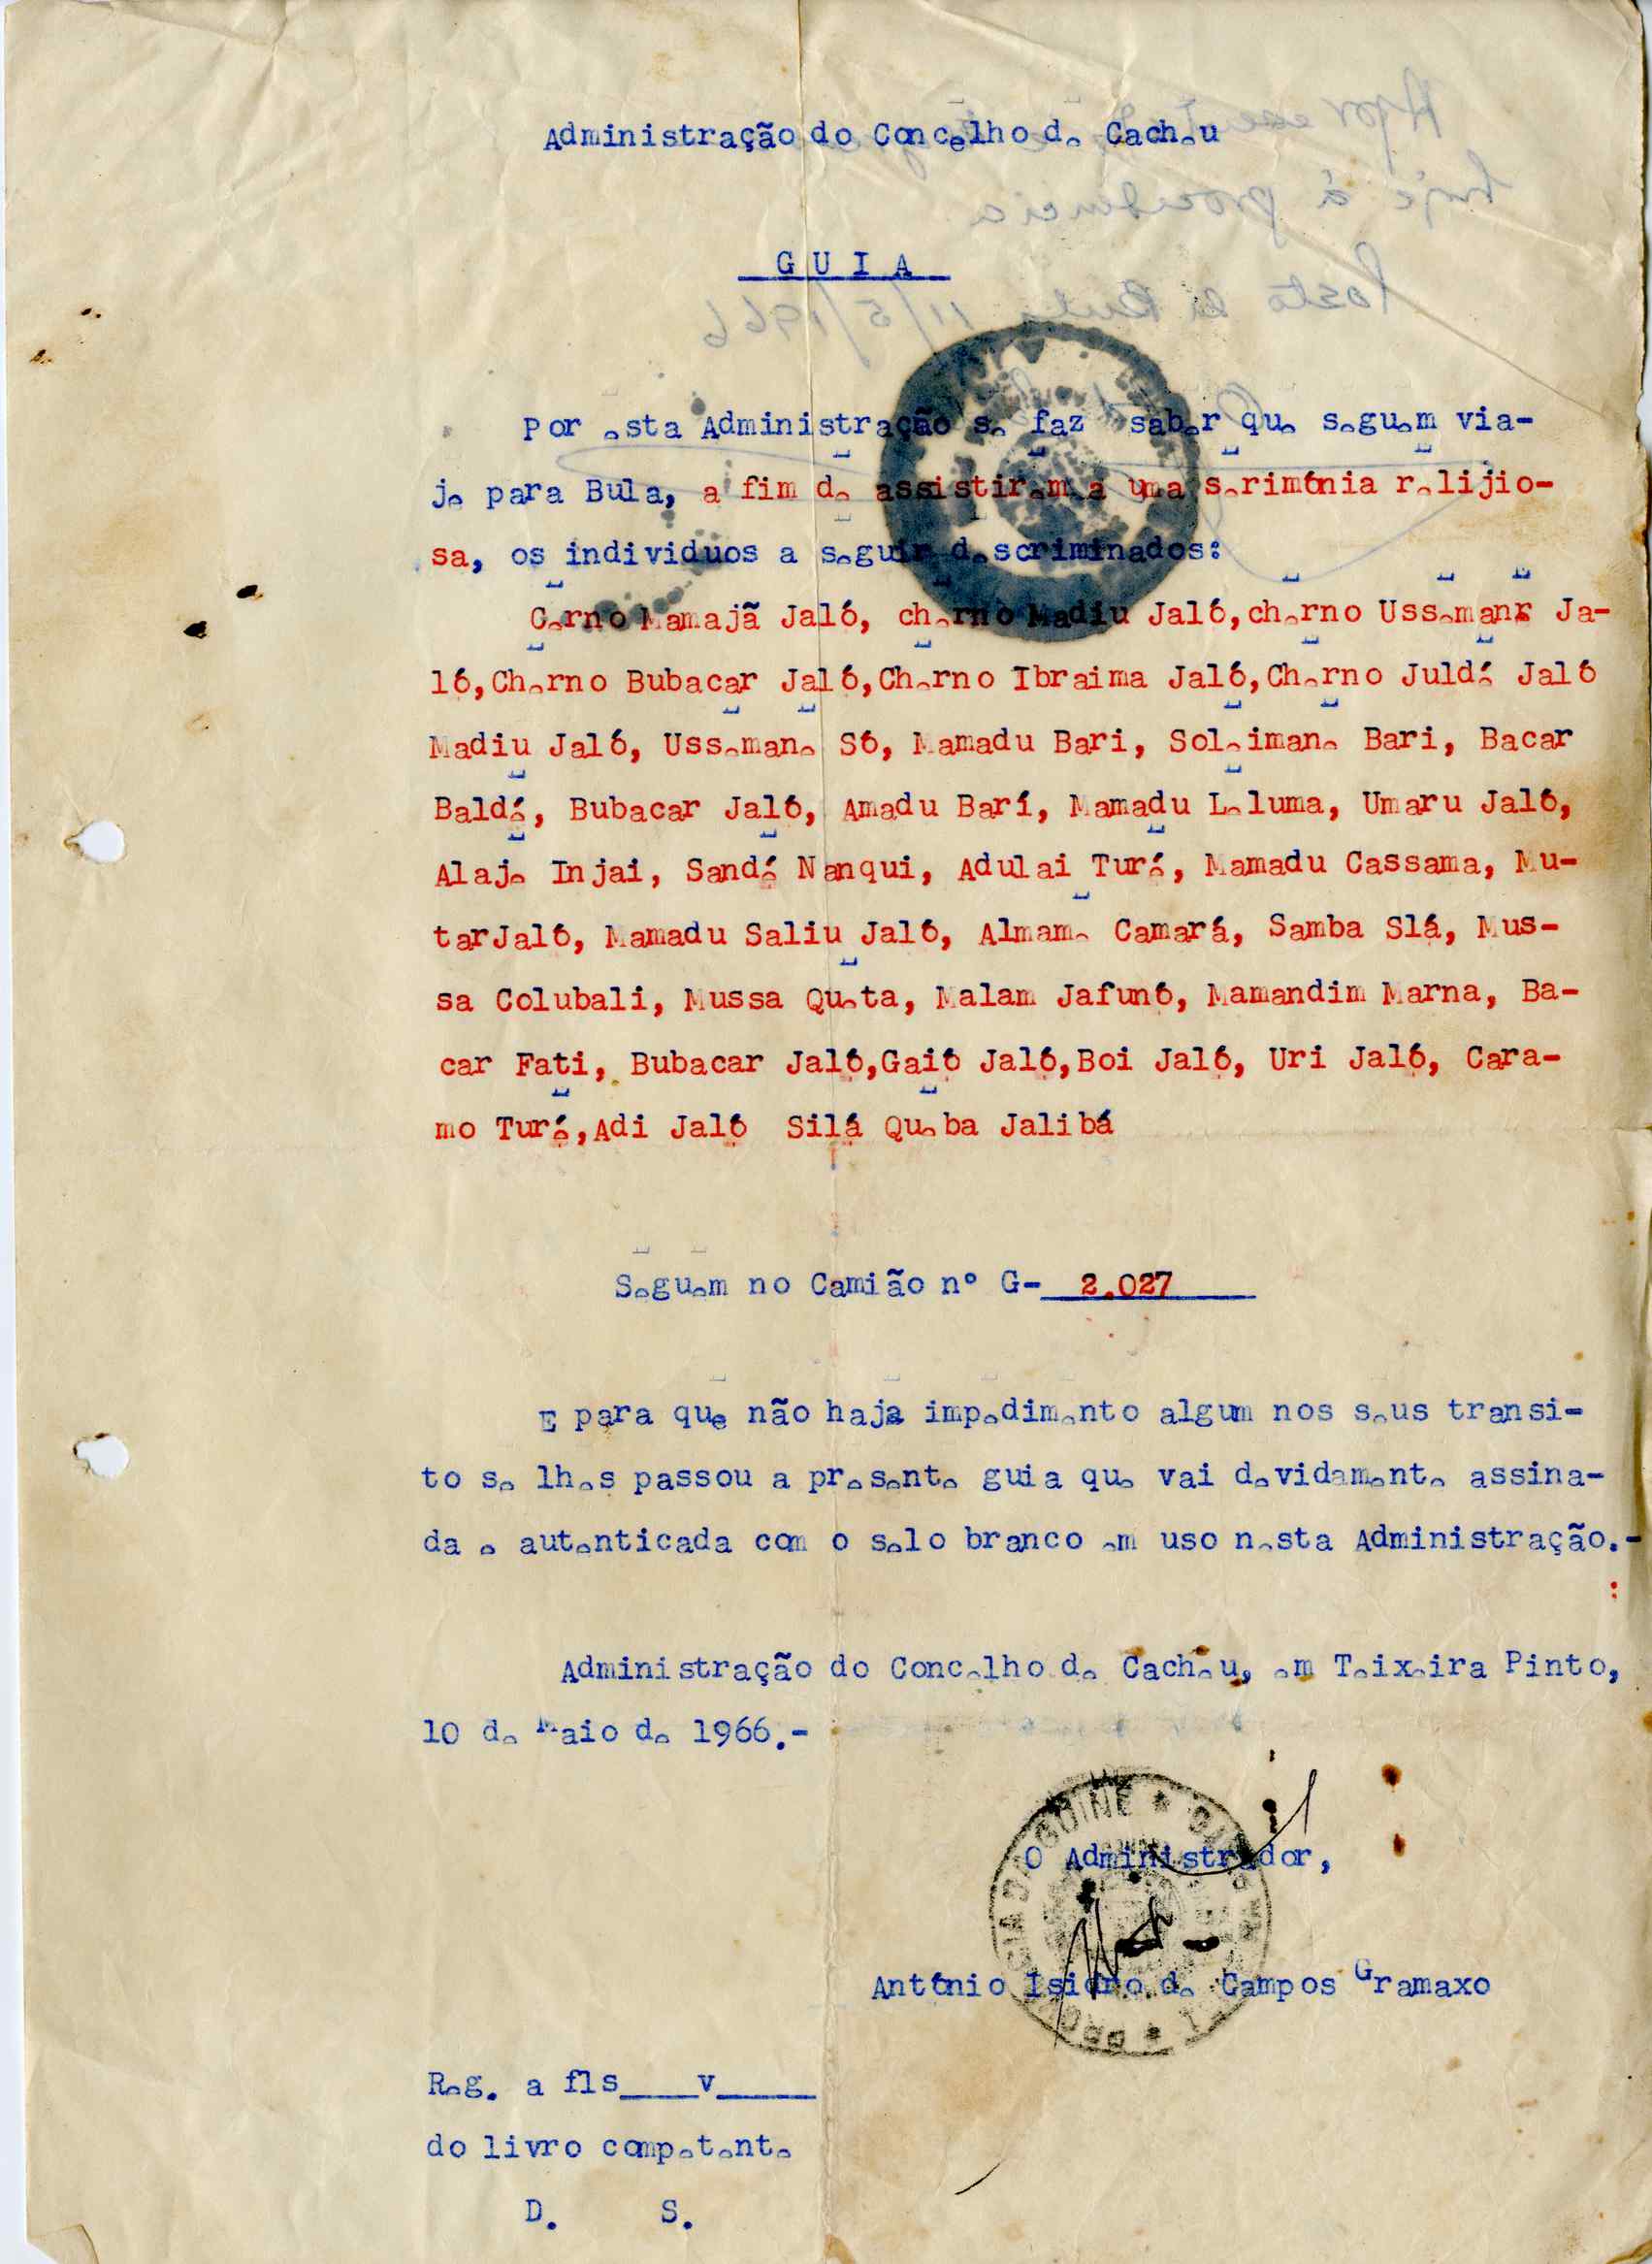 Administração do Concelho de Cacheu
GUIA
Por esta Administração se faz saber que seguem via-
je para Bula, a fim de assistirem a uma serimónia relijio-
sa, os individuos a seguir descriminados:
Gerno Mamajã Jaló, cherno Madiu Jaló,cherno Ussemane Ja-
ló,Cherno Bubacar Jaló,Cherno Ibraima Jaló,Cherno Juldé Jaló
Madiu Jaló, Ussemane Só, Mamadu Bari, Soleimane Bari, Bacar
Baldé, Bubacar Jaló, Amadu Barí, Mamadu Leluma, Umaru Jaló,
Alaje Injai, Sandé Nanqui, Adulai Turé, Mamadu Cassama, Mu-
tarJaló, Mamadu Saliu Jaló, Almame Camará, Samba Slá, Mus-
sa Colubali, Mussa Queta, Malam Jafunó, Mamandim Marna, Ba-
car Fati, Bubacar Jaló,Gaió Jaló,Boi Jaló, Uri Jaló, Cara-
mo Turé,Adi Jaló Silá Queba Jalibá
Seguem no Camião nº G- 2.027
E para que não haja impedimento algum nos seus transi-
to se lhes passou a presente guia que vai devidamente assina-
da e autenticada com o selo branco em uso nesta Administração.-
Administração do Concelho de Cacheu, em Teixeira Pinto,
10 de Maio de 1966.-
O Administrador,
António Isidro de Campos Gramaxo
Reg. a fls____v_____
do livro competente
D. S.